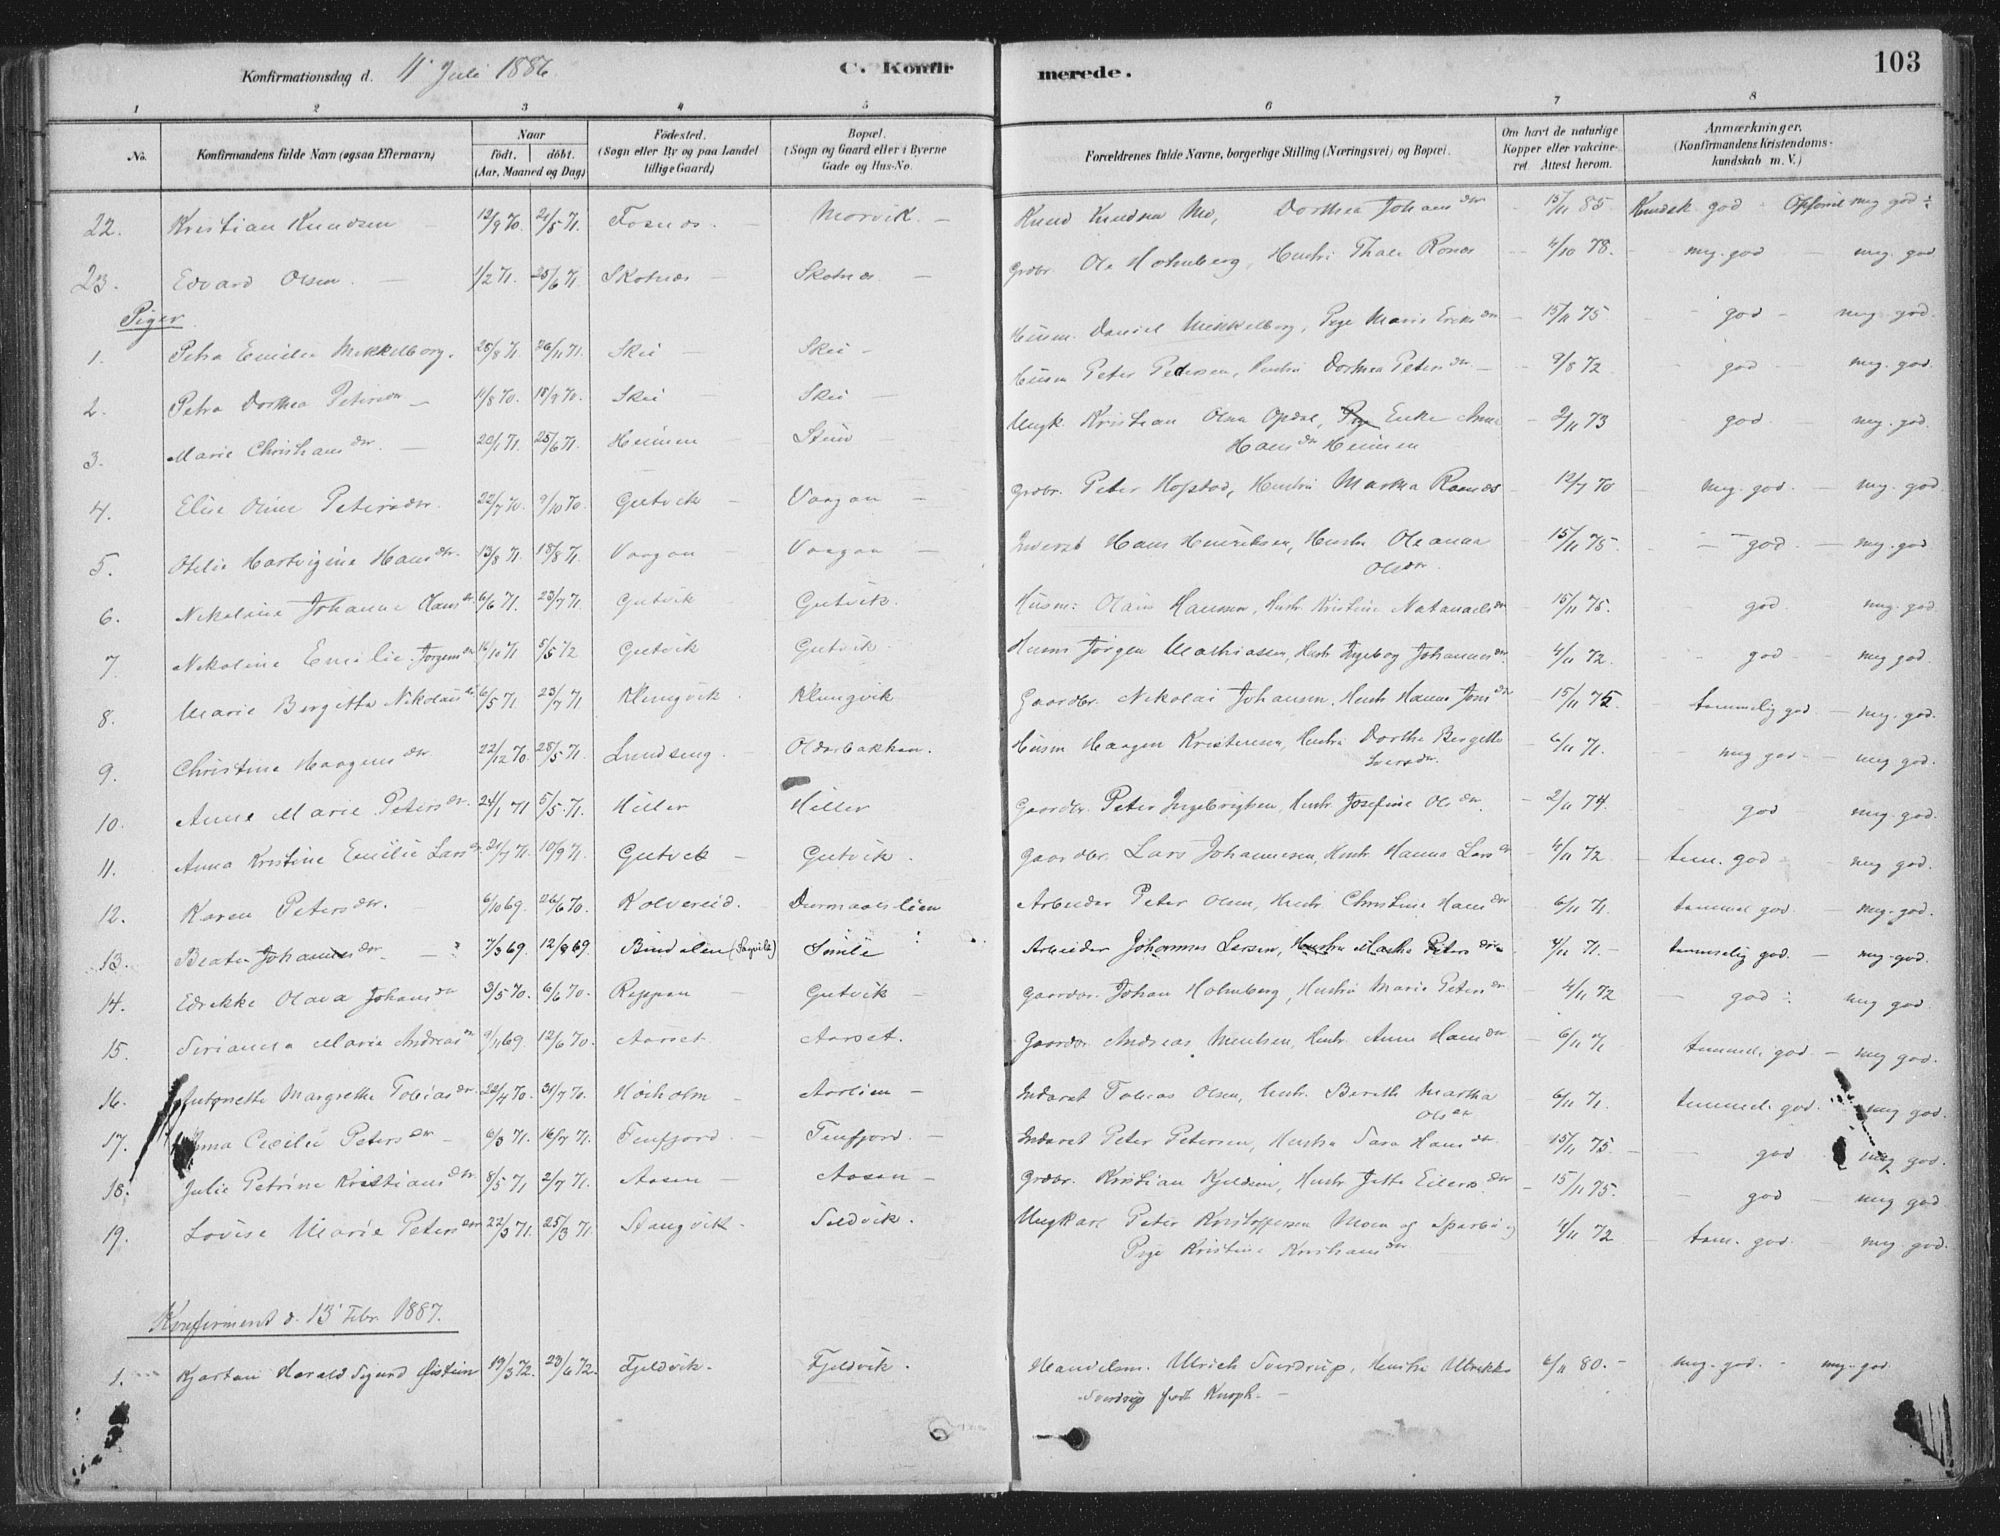 Konfirmationsdag d. 11' Juli 1886. C. Konfirmerede. 103
1 2 3 4 5 6 7 8
No. Konfirmandens fulde Navn (ogsaa Efternavn) Naar födt. döbt. (Aar, Maaned og Dag) Födested. (Sogn eller By og paa Landet tillige Gaard) Bopæl. (Sogn og Gaard eller i Byerne Gade og Hus-No. Forældrenes fulde Navne, borgerlige Stilling (Næringsvei) og Bopæl. Om havt de naturlige Kopper eller vaccineret. Attest herom. Anmærkninger. (Konfirmandens Kristendomskundskab m. V.)
22. Kristian Knudsen 12/9 70 21/5 71. Fosnes. Morvik. Knud Knudsen Mo, Dorthea Johansdtr 15/11 85. Kundsk god Opførsel meg god
23. Edvard Olsen 1/2 71. 25/6 71. Skotnes Skotnes Grdbr. Ole Holmberg, Hustru Thale 4/10 78. meg. god meg. god
Piger
1. Petra Emilie Mikkelborg. 28/8 71 26/11 71. Skei Skei Husm. Daniel Mikkelborg, Pige Marie Eriksdtr 15/11 75 god meg god.
2. Petra Dorthea Petersdtr 11/8 70. 18/9 70. Skei Skei Husm Peter Pedersen, Hustru Dorthea Petersdtr. 9/8 72 god meg. god.
3. Marie Christiansdtr. 20/1 71. 25/6 71. Heimen Ungk. Kristian Olsen Opdal, Enke Anne Hansdtr Heimen 2/11 73 god meg. god.
4. Elise Oline Petersdtr. 22/7 70. 9/10 70 Gutvik Vaagan Grdbr. Peter Hofstad, Hustru Martha 12/7 70 meg. god meg. god.
5. Otelie Hartvigine Hansdtr. 13/8 71. 18/8 71 Vaagan Vaagan Inderst Hans Henriksen, Hustru Oleanna Olsdtr. 15/11 75. god meg. god
6. Nikoline Johanne Olausdtr 6/6 71. 23/7 71. Gutvik Gutvik. Husm: Olaus Hansen, Hustr. Kristine Natanaelsdtr 15/11 75. god meg. god.
7. Nikoline Emilie Jørgensdtr 16/10 71 5/5 72 Gutvik Gutvik. Husm Jørgen Mathiassen, Hustr Ingeborg Johannesdtr. 4/11 72. god meg god.
8. Marie Bergitta Nikolaisdtr 6/5 71 23/7 71 Klungvik Klungvik Gaardbr. Nikolai Johansen, Hustr Hanna Jonsdtr 15/11 75. tammelig god meg. god.
9. Christine Haagensdtr 22/12 70. 28/5 71. Lundseng Olderbakken. Husm Haagen Kristensen, Hustru Dorthe Bergette Sversdtr. 6/11 71. meg god meg god.
10. Anne Marie Petersdtr. 24/1 71 5/5. 71. Hiller Hiller Gaardbr. Peter Ingebrigtsen, Hustr. Josefine Olsdtr. 2/11 74. god meg. god.
11. Anna Kristine Emilie Larsdtr 21/7 71. 10/9 71. Gutvik Gutvik. Gaardbr. Lars Johannesen, Hustr. Hanna Larsdtr 4/11 72 tem. god meg god.
12. Karen Petersdtr. 6/10 69. 26/6 70. Kolvereid. Durmaalslien Arbeider Peter Olsen, Hustr. Christine Hansdtr 6/11 71. tammel god meg. god.
13. Beate Johannesdtr 7/3 69. 12/8 69. Bindalen Simle Arbeider Johannes Larsen, Hustru Marthe Petersdtr 4/11 71. tammelig god. meg. god.
14. Edrikke Olava Johansdtr 3/5 70. 6/6 70. Reppen Gutvik Gaardbr. Johan Holmberg, Hustru Marie Petersdtr 4/11 72 god meg god.
15. Serianna Marie Andreasdtr 9/4 69. 12/6 70. Aarset Aarset. Gaardbr Andreas Hustr. Anne Hansdtr 6/11 71 temmel. god meg god.
16. Antonette Margrethe Tobiasdtr 22/4 70. 31/7 70. Høiholm Aarlien Inderst Tobias Olsen, Hustr. Bereth Martha Olsdtr 6/11 71. temmel. god. meg god.
17. Anna Cecilie Petersdtr 6/3 71. 16/7 71. Finfjord. Finfjord. Inderst Peter Petersen, Hustru Sara Hansdtr. 15/11 75. god meg god.
18. Julie Petrine Kristiansdtr 8/5 71 2/7 71. Aasen Aasen Grdbr. Kristian Kjeldsen, Hustr Jette Eilersdtr 15/11 75. god meg god
19. Lovise Marie Petersdtr 22/3 71. 25/3 71. Stangvik. Selvik. Ungkarl Peter Kristoffersen Moen og Sparbu og Pige Kristine Kristiansdtr 4/11 72 tem. god meg. god.
Konfirmeret d. 13' Febr. 1887.
1. Kjartan Harald Sigurd Øistein 19/3 72. 23/6 72. Fjeldvik. Fjeldvik. Handelsm. Ulrich Sverdrup, Hustru Ulrikke Sverdrup født Knoph. 6/11 80. meg. god. meg. god